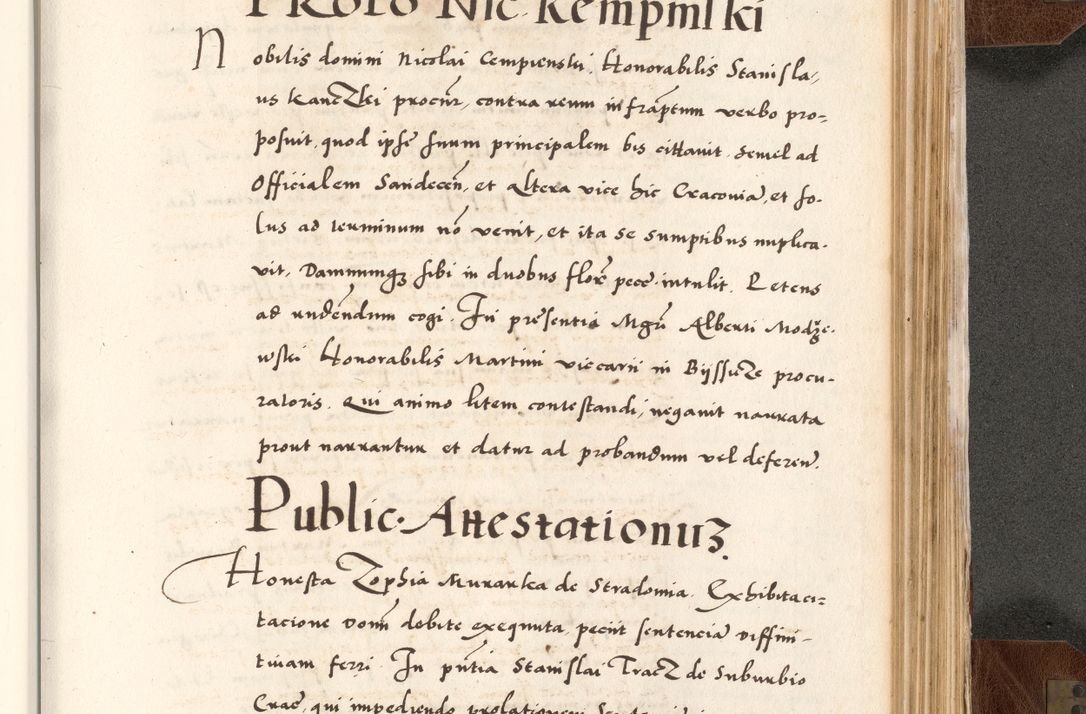 Proto Nic. Kempinski
Nobilis domini Nicolai Cempienski, Honorabilis Stanisla,
us Kanczki procur, contra reum infraptum verbo pro=
posuit, quod ipse suum principalem bis cittavit. Semel ad
Officialem Sandecen, et altera vice hic Cracovia, et so-
lus ad terminum no venit, et ita se sumptibus
vit, Damnumq3 sibi in duobus flor pece intulit. Petens
ad cogi. In presentia Mgri Alberti Modze-
wski Honorabilis Martini viccarii in procu-
ratoris. Qui animo litem contestandi, negavit narrata
prout narrantur et datur ad probandum vel deferen.
Public. Attestationu3.
Honesta Zophia Murarka de Stradomia. Exhibita ci=
tacione Domi debite exequuta, peciit sentencia diffini-
tivam ferri. In pntia Stanislai Tracz de Suburbio
Crac, qui impediendo prolationem